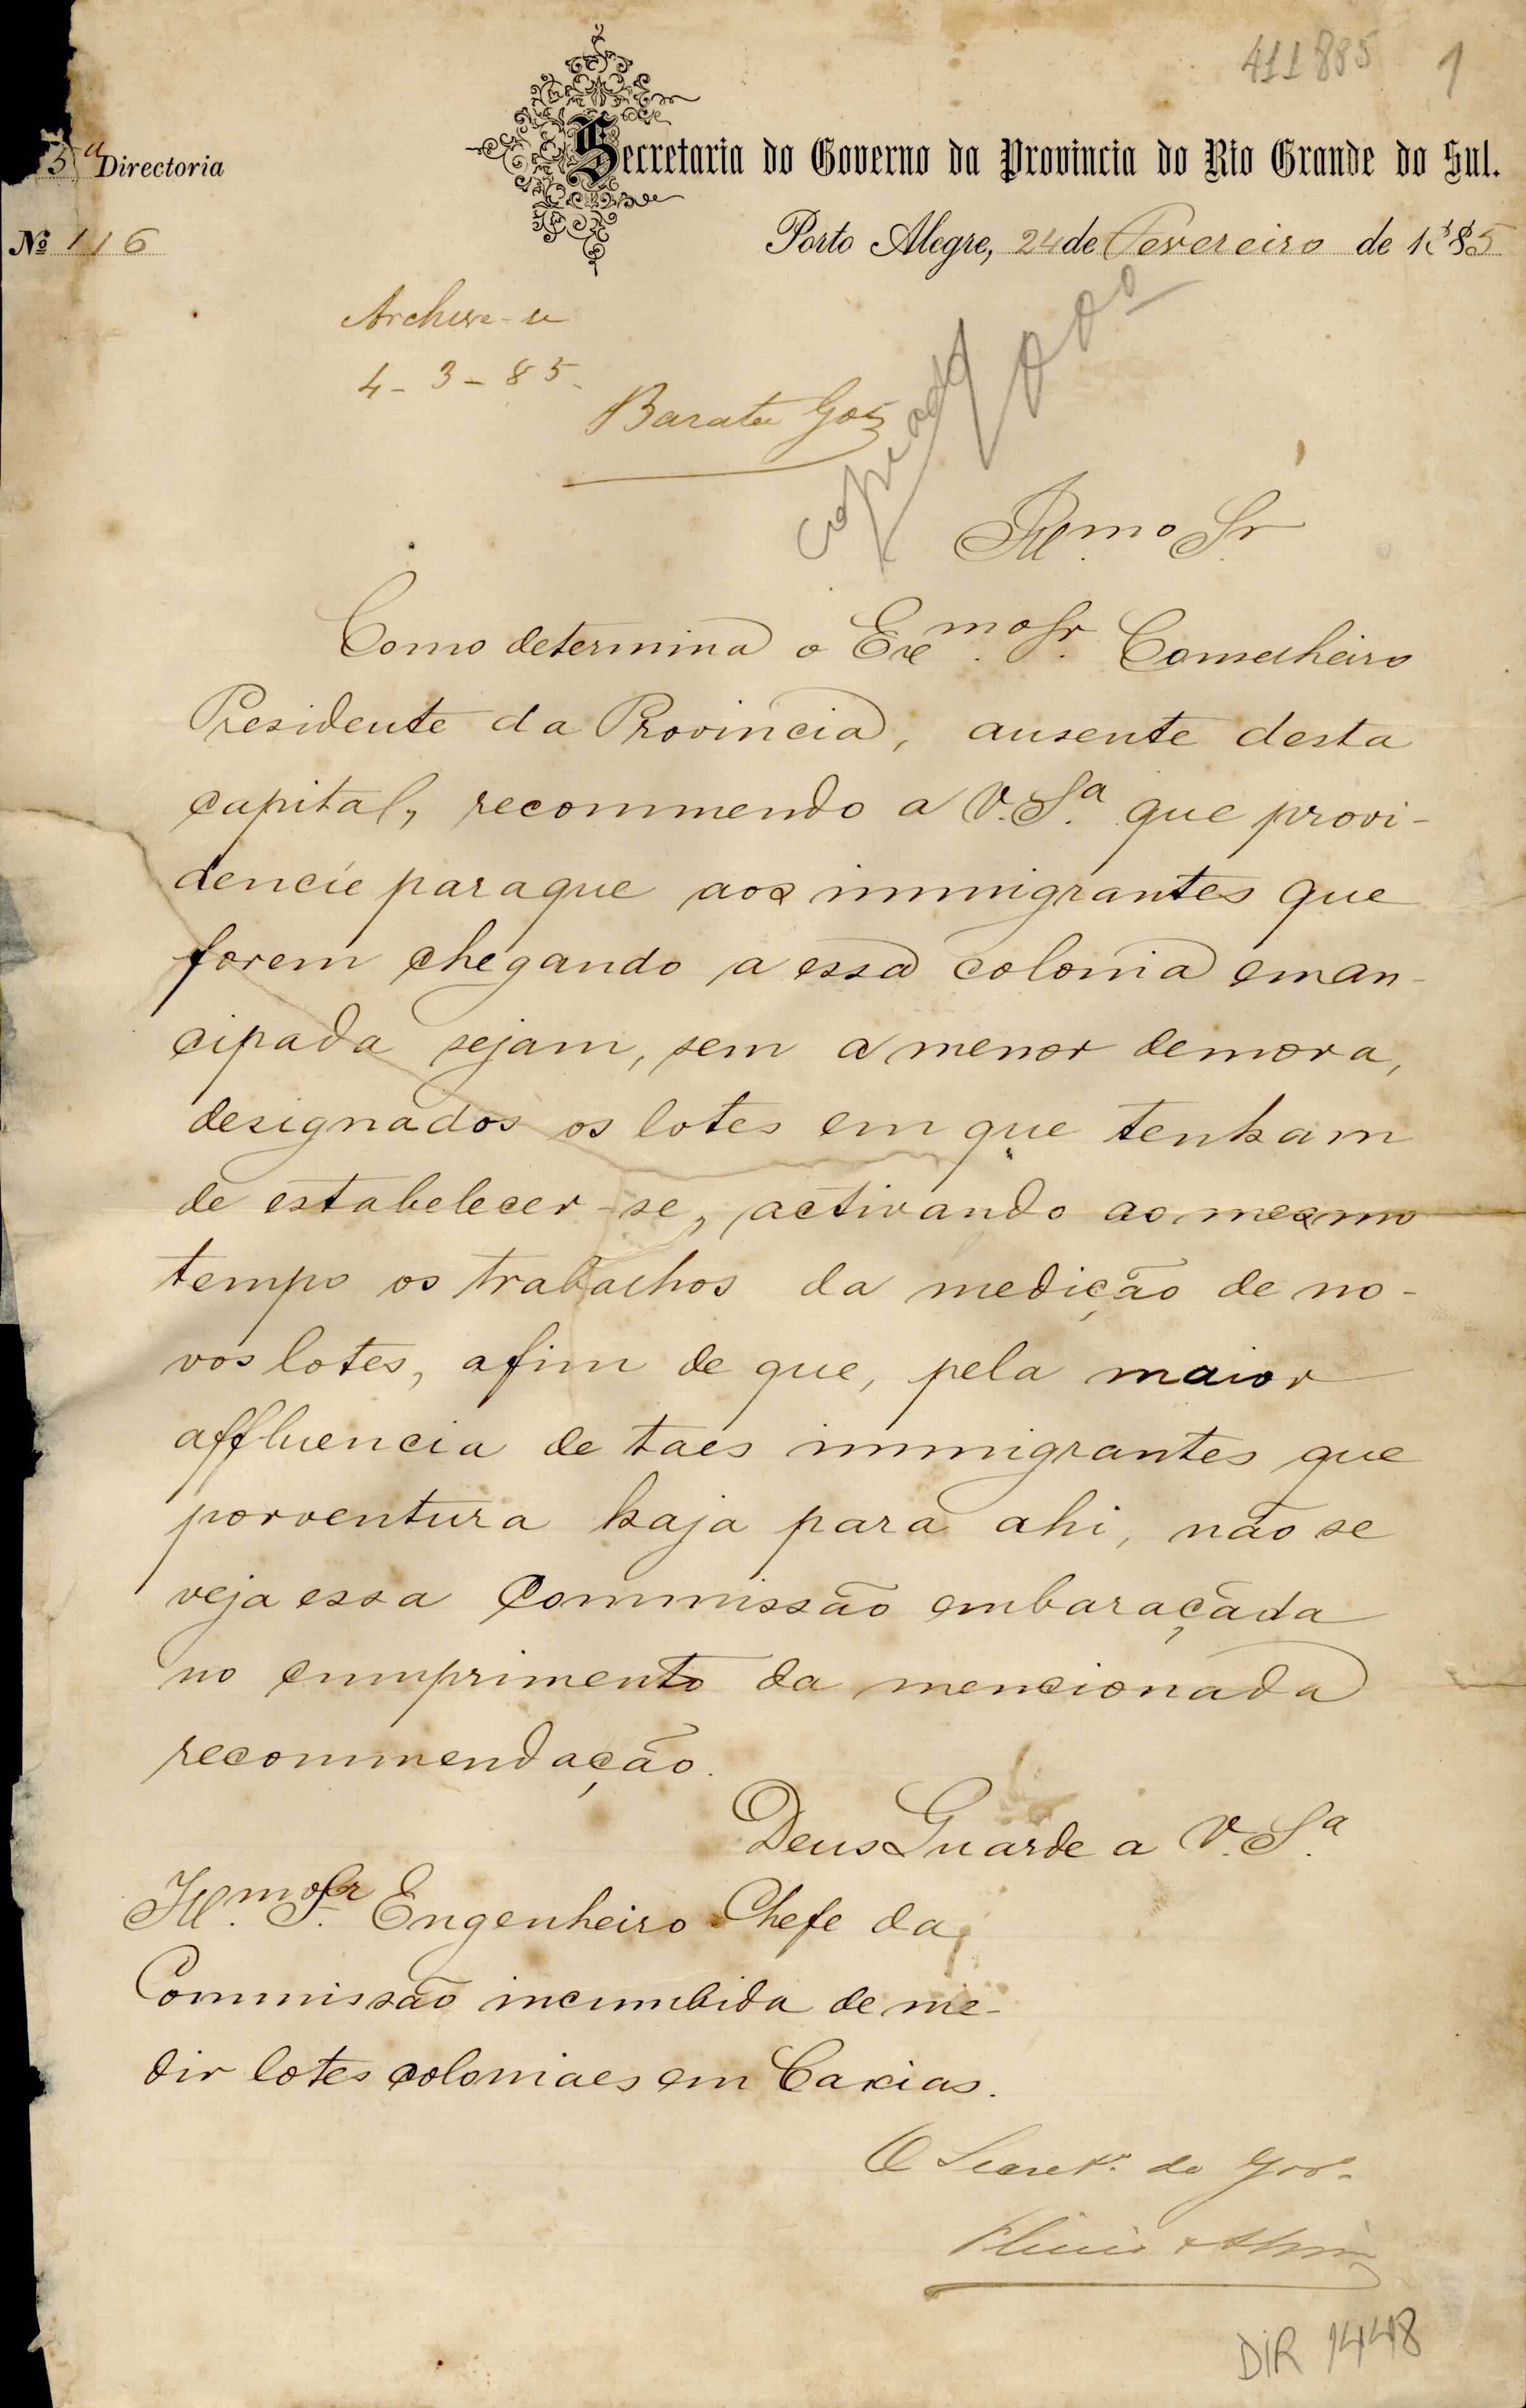 411885 1
5ª Directoria
Secretaria do Governo da Provincia do Rio Grande do Sul.
Nº 116
Porto Alegre, 24 de Fevereiro de 1885
Archive-se
4-3-85
Barata Góes
copiado
Illmo. Sr.
Como determina o Exmo. Sr. Conselheiro
Presidente da Provincia, ausente desta
capital, recommendo a V. Sª. que provi-
dencie para que aos immigrantes que
forem chegando a essa colonia eman-
cipada sejam, sem a menor demora,
designados os lotes em que tenham
de estabelecer-se, activando ao mesmo
tempo os trabalhos da medição de no-
vos lotes, afim de que, pela maior
affluencia de taes immigrantes que
porventura haja para ahi, não se
veja essa Commissão embaraçada
no cumprimento da mencionada
recommendação.
Deus Guarde a V. Sª.
Illmo. Sr. Engenheiro Chefe da
Commissão incumbida de me-
dir lotes coloniaes em Caxias.
O Secretº. do Gov.
DIR 1448